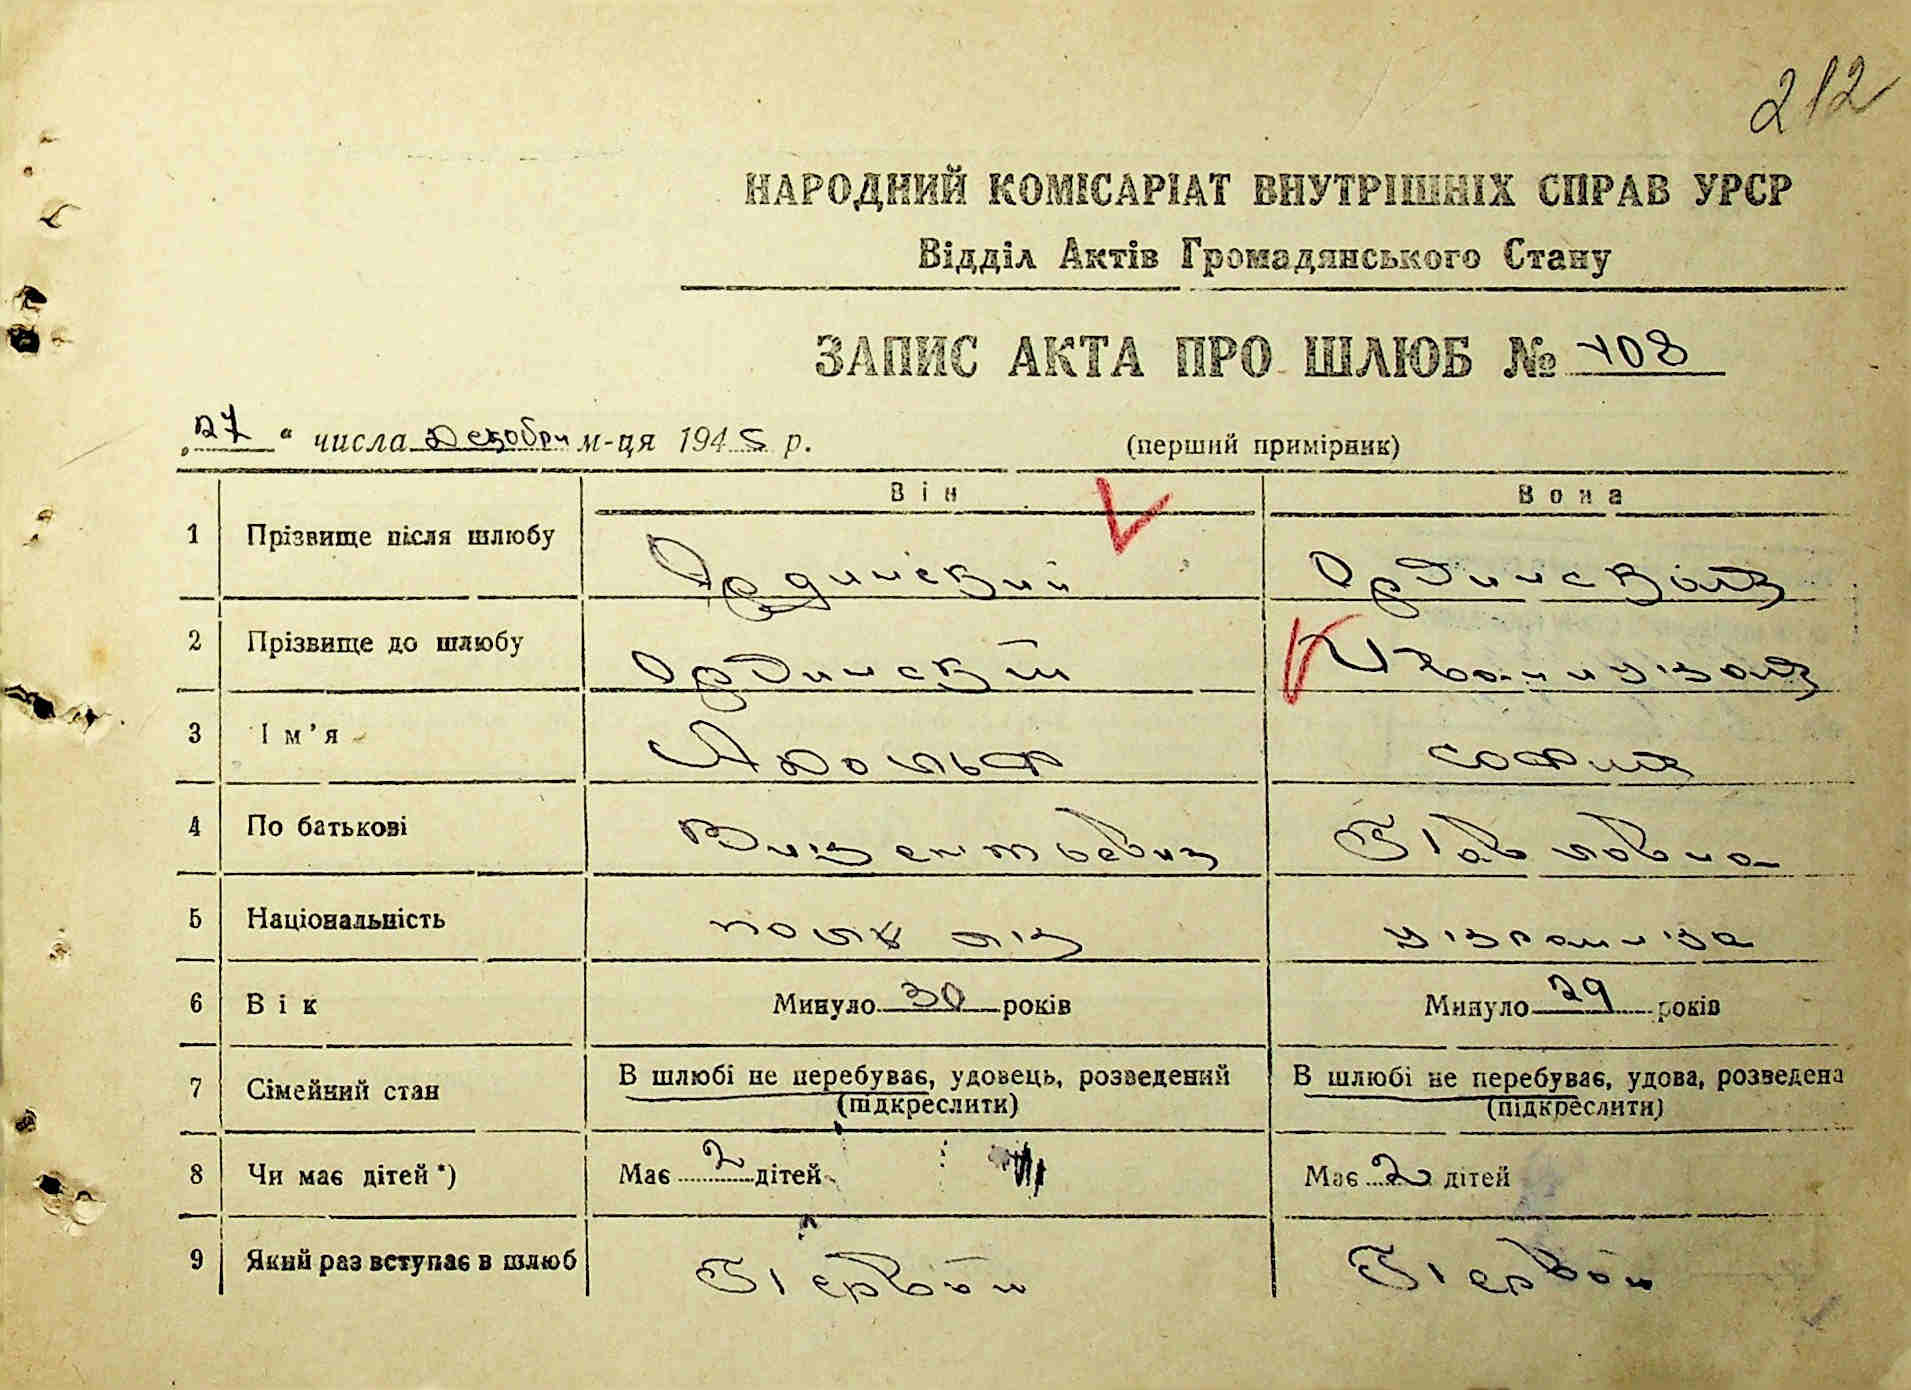 212
НАРОДНИЙ КОМІСАРІАТ ВНУТРІШНІХ СПРАВ УРСР
Відділ Актів Громадянського Стану
ЗАПИС АКТА ПРО ШЛЮБ № 108
„27“ числа Декобри м-ця 1945 р. (перший примірник)
Він Вона
1 Прізвище після шлюбу Ордински​й Ординская
2 Прізвище до шлюбу Ординский
3 Ім'я Адольф София
4 По батькові Викентьевич Павловна
5 Національність українка
6 Вік Минуло 30 років Минуло 29 років
7 Сімейний стан В шлюбі не перебуває, удовець, розведений (підкреслити) В шлюбі не перебуває, удова, розведена (підкреслити)
8 Чи має дітей *) Має 2 дітей Має 2 дітей
9 Який раз вступає в шлюб Первой Первой